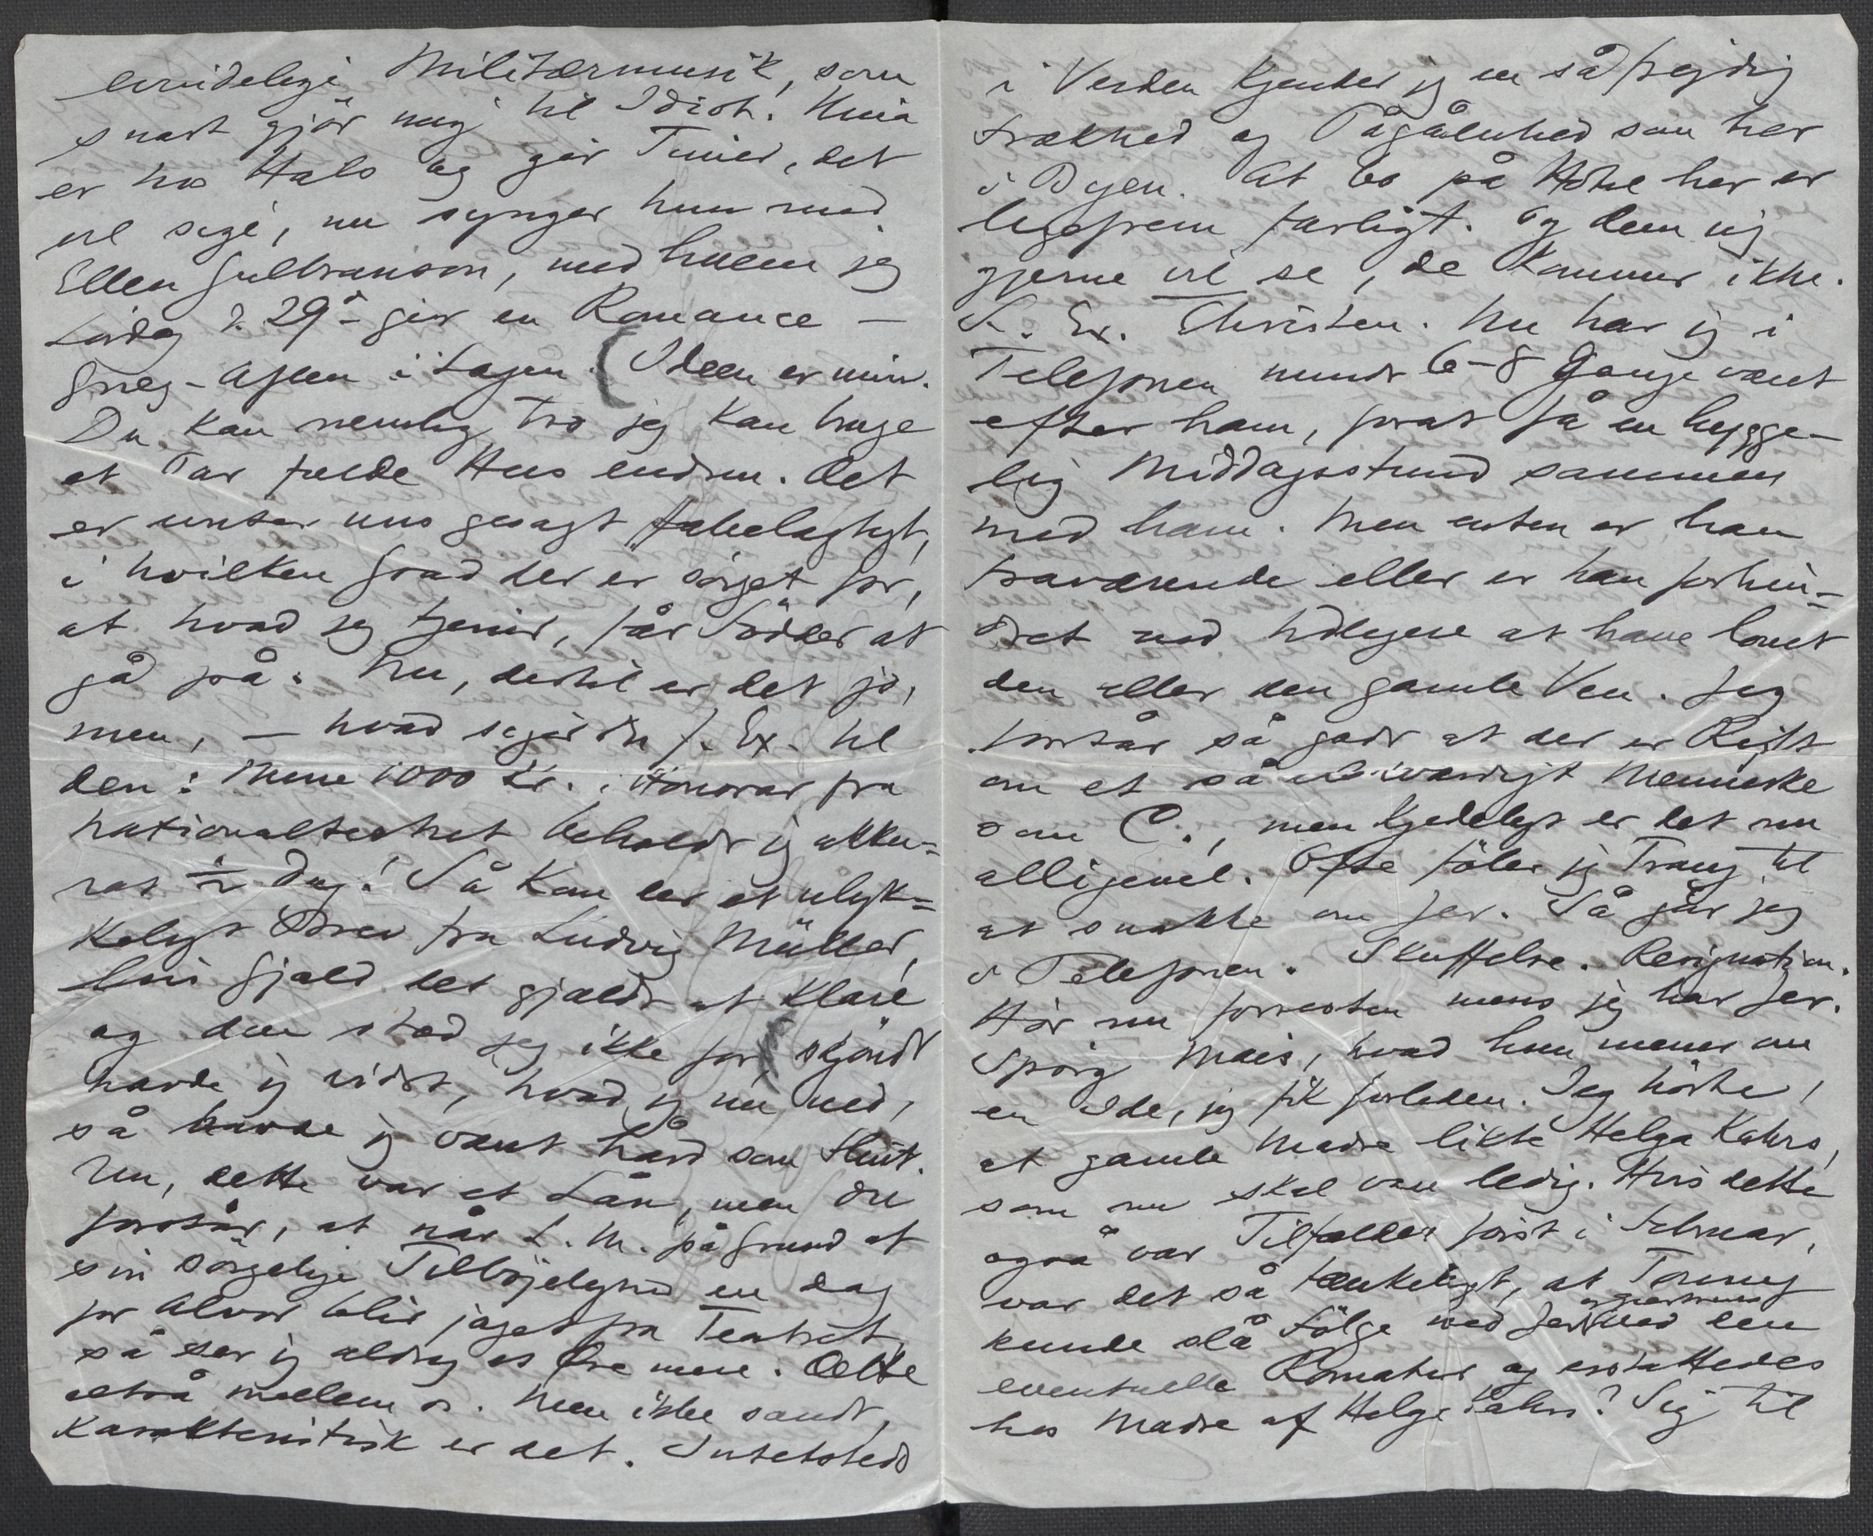 evindelige Militærmusik, som
snart gjör mig til Idiot. Nina
er hos Hals og gir Timer, det
vil sige, nu synger hun med
Ellen Gulbranson, med hvem jeg
Lördag d. 29de gir en Romance –
Grieg-Aften i Logen. (Ideen er min.
Du kan nemlig tro jeg kan bruge
et Par fulde Hus endnu. Det
er unter uns gesagt fabelagtigt,
i hvilken Grad der er sörget for,
at hvad jeg tjener, får Födder at
gå på. Nu, dertil er det jo,
men, – hvad siger du f. Ex. til
den: Mine 1000 Kr. i Honorar fra
Nationalteatret beholdt jeg akku-
rat ½ Dag! Så kom der et ulyk-
keligt Brev fra Ludvig Müller,
hvis Gjæld det gjaldt at klare
og den stod jeg ikke for, skjöndt
havde jeg vidst, hvad jeg nu ved,
så havde jeg været hård som Flint.
Nu, dette var et Lån, men du
forstår, at når L. M. på Grund af
sin sörgelige Tilböjelighed en Dag
for Alvor blir jaget fra Teatret,
så ser jeg aldrig et Öre mere. Dette
altså mellem os. Men ikke sandt,
karakteristisk er det. Intetsteds
i Verden kjender jeg en så frejdig
Frækhed og Pågåenhed som her
i Byen. At bo på Hotel her er
ligefrem farligt. Og dem jeg
gjerne vil se, de kommer ikke.
F. Ex. Christen. Nu har jeg i
Telefonen mindst 6–8 Gange været
efter ham, forat få en hygge-
lig Middagsstund sammen
med ham. Men enten er han
fraværende eller er han forhin-
dret ved tidligere at have lovet
den eller den gamle Ven. Jeg
forstår så godt at der er Rift
om et så elskværdigt Menneske
som C., men kjedeligt er det nu
alligevel. Ofte föler jeg Trang til
at snakke om Jer. Så går jeg
i Telefonen. Skuffelse. Resignation.
Hör nu forresten mens jeg har Jer.
Spörg Mais, hvad hun mener om
en Ide, jeg fik forleden. Jeg hörte,
at gamle Madre likte Helga Kahrs,
som nu skal være ledig. Hvis dette
også var Tilfældet först i Februar,
var det så tænkeligt, at Tonny
kunde slå Fölge med Jer ved den
eventuelle Romatur og erstattedes
hos Madre af Helga Kahrs? Sig til